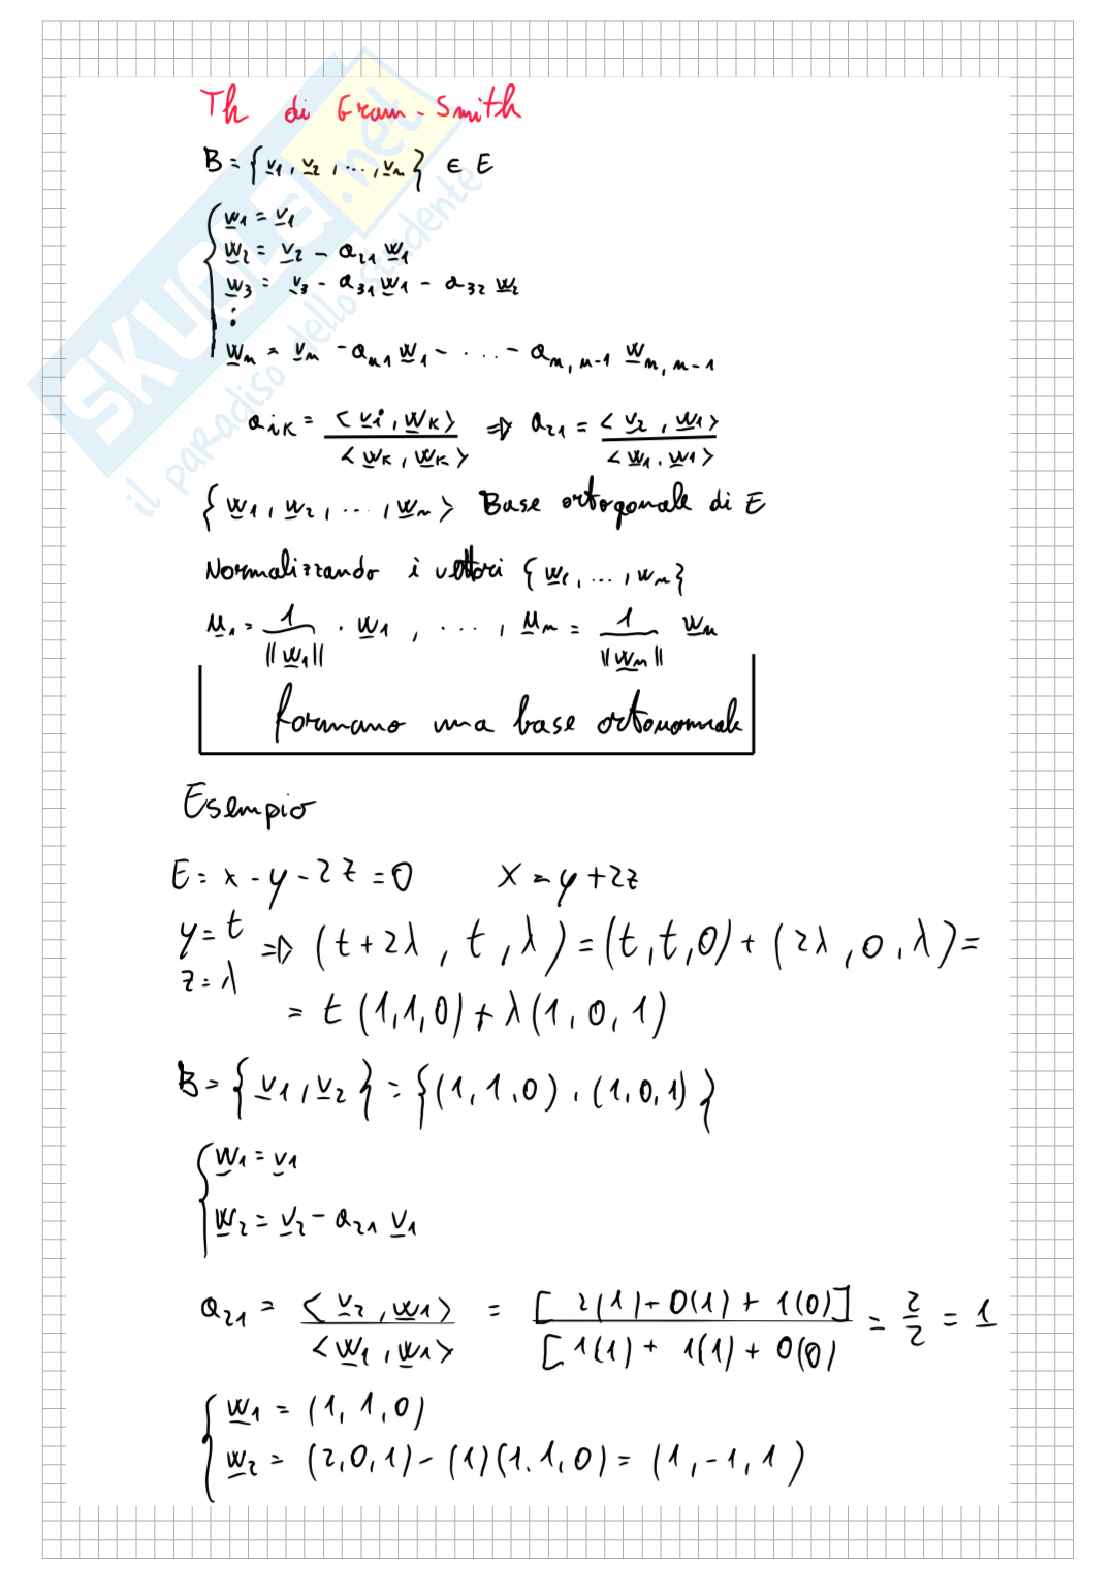 Th di Gram-Smith
B = {v1, v2, ..., vn} ∈ E
w1 = v1
w2 = v2 - a21 w1
w3 = v3 - a31 w1 - a32 w2
⋮
wn = vn - an1 w1 - ... - an,n-1 wn,n-1
aik = <vi, wk> / <wk, wk> ⇒ a21 = <v2, w1> / <w1, w1>
{w1, w2, ..., wn> Base ortogonale di E
Normalizzando i vettori {w1, ..., wn}
u1 = 1/||w1|| · w1, ..., un = 1/||wn|| wn
formano una base ortonormale
Esempio
E = x - y - 2z = 0 x = y + 2z
y = t
z = λ
⇒ (t+2λ, t, λ) = (t, t, 0) + (2λ, 0, λ) =
= t(1,1,0) + λ(1,0,1)
B = {v1, v2} = {(1,1,0), (1,0,1)}
w1 = v1
w2 = v2 - a21 v1
a21 = <v2, w1> / <w1, w1> = [2(1)+0(1)+1(0)] / [1(1)+1(1)+0(0) = 2/2 = 1
w1 = (1,1,0)
w2 = (2,0,1) - (1)(1,1,0) = (1,-1,1)
SKUOLA.net
il paradiso dello studente